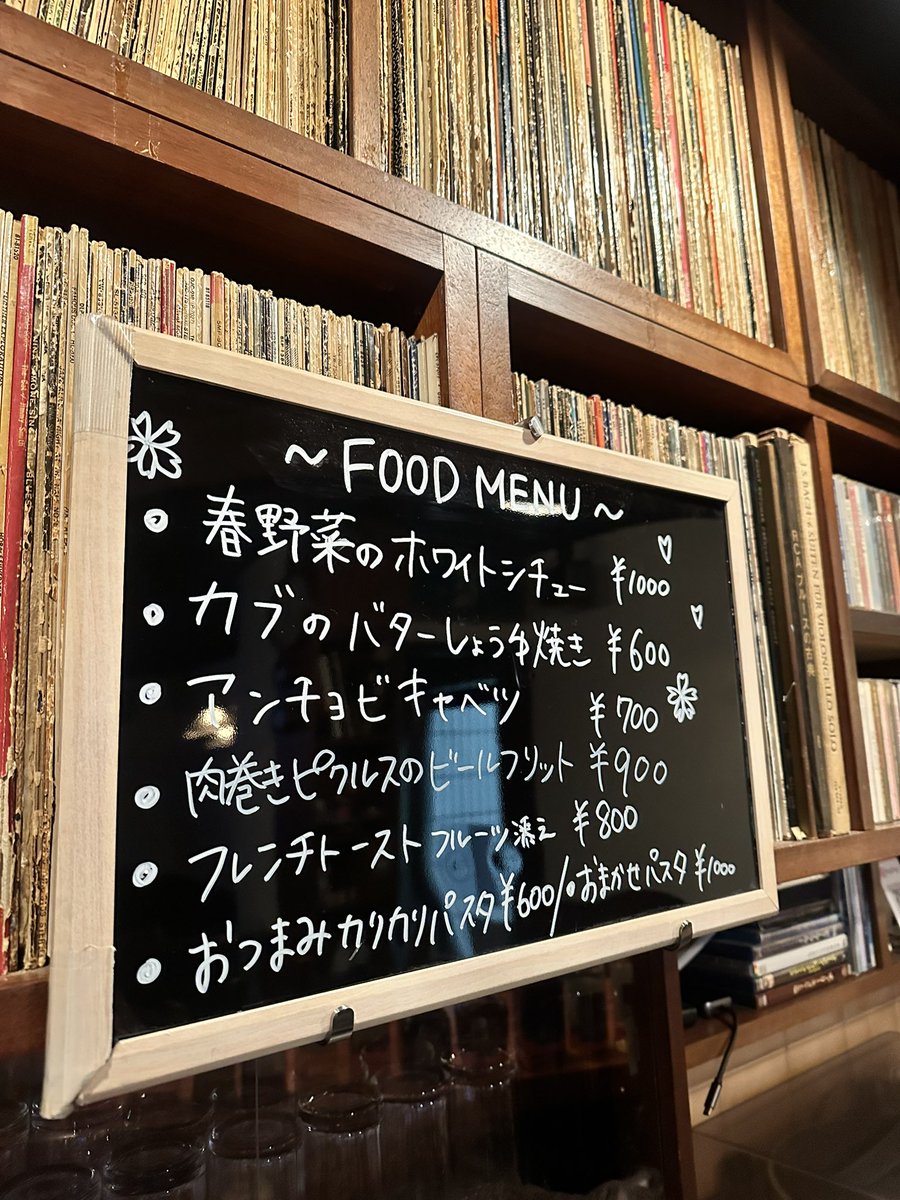 ~ FOOD MENU ~
春野菜のホワイトシチュー ¥1000
カブのバターしょうゆ焼き ¥600
アンチョビキャベツ ¥700
肉巻きピクルスのビールフリット ¥900
フレンチトースト フルーツ添え ¥800
おつまみカリカリパスタ ¥600/・おまかせパスタ ¥1000
J.S. BACH 6 SUITEN FÜR VIOLONCELLO SOLO